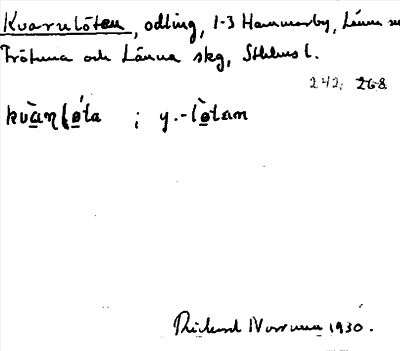 Kvarnlötan, odling, 1-3 Hammarby, Länna sn
Frötuna och Länna skg, Sthlms l.
242; 268
kvàṇḷøta ; y. -lòtan
Rickard Norrman 1930.